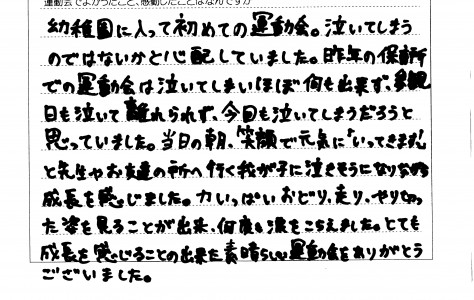 運動会でよかったこと、感動したことはなんですか
幼稚園に入って初めての運動会。泣いてしまう
のではないかと心配していました。昨年の保育所
での運動会は泣いてしまいほぼ何も出来ず、参観
日も泣いて離れられず、今回も泣いてしまうだろうと
思っていました。当日の朝、笑顔で元気に「いってきます!」
と先生やお友達の所へ行く我が子に泣きそうになりながら
成長を感じました。力いっぱいおどり、走り、やりきっ
た姿を見ることが出来、何度も涙をこらえました。とても
成長を感じることの出来た素晴らしい運動会をありがとう
ございました。